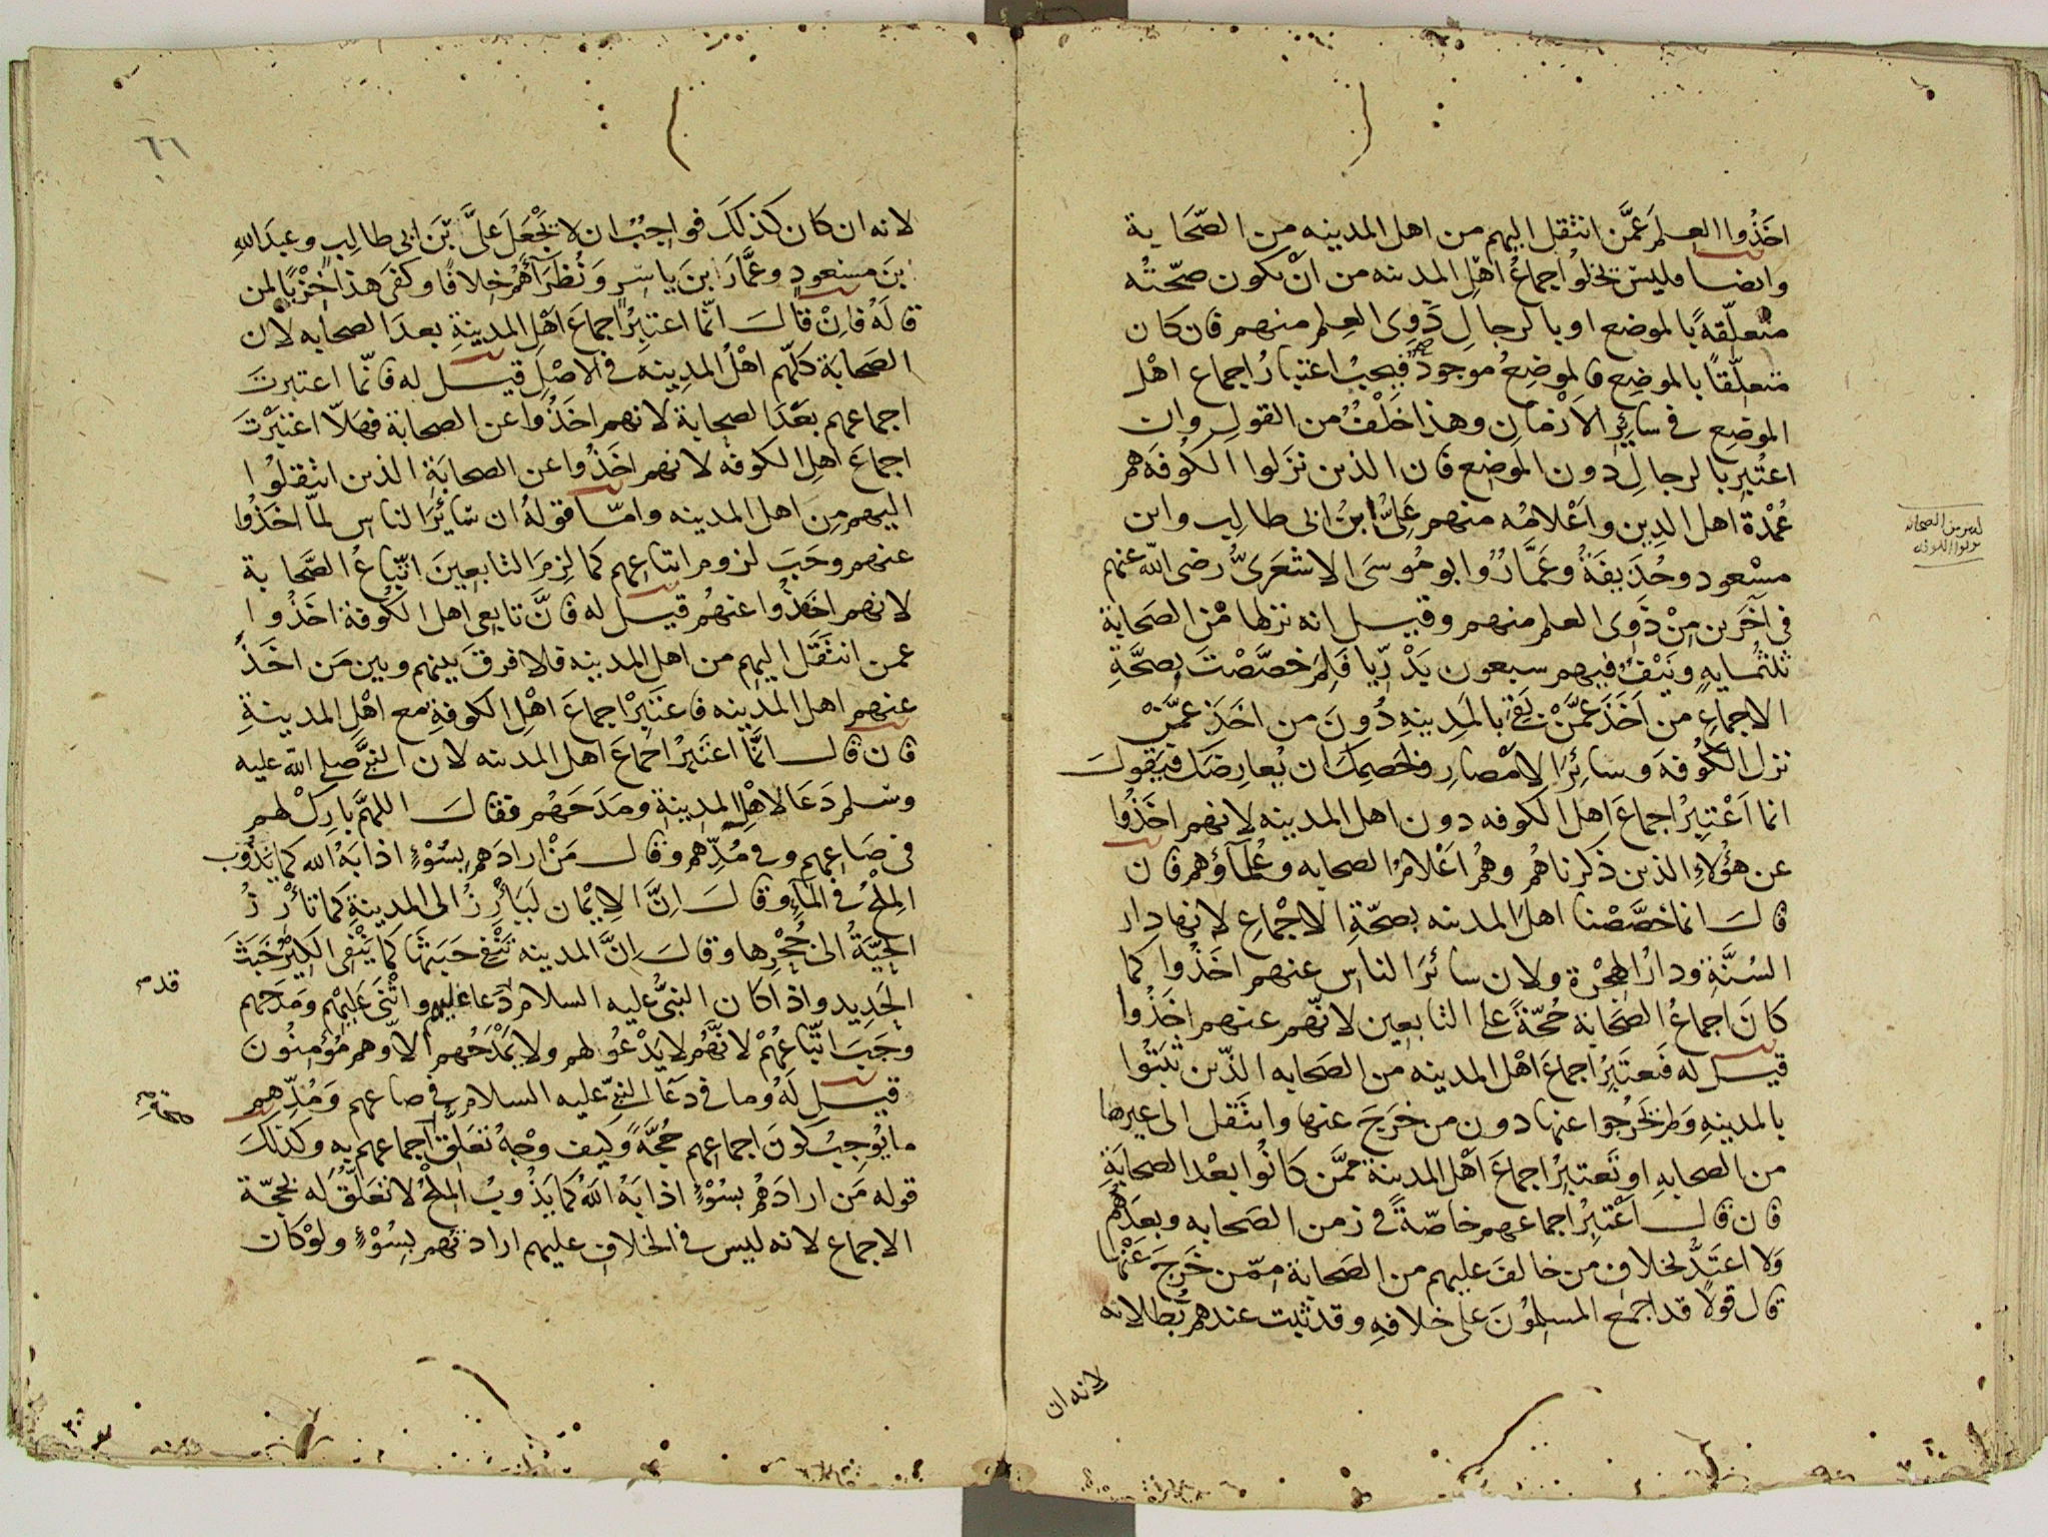 اخذوا العلم عمن انتقل اليهم من اهل المدينه من الصحابة
وايضا فليس تخلوا اجماع اهل المدينه من ان يكون صحته
متعلقة بالموضع او بالرجال ذوى العلم منهم فان كان
متعلقا بالموضع فالموضع موجود فيجب اعتبار اجماع اهل
الموضع في سائر الازمان وهذا خلف من القول وان
اعتبر بالرجال دون الموضع فان الذين نزلوا الكوفه هم
عمدة اهل الدين واعلامه منهم على ابن ابى طالب وابن
مسعود وحذيفة وعمار وابو موسى الاشعرى رضى الله عنهم
في آخرين من ذوى العلم منهم وقيل انه نزلها من الصحابة
ثلثمايه ونيف فيهم سبعون بدريا فلم خصصت بصحة
الاجماع من اخذ عمن بقى بالمدينه دون من اخذ عمن
نزل الكوفه وسائر الامصار ولخصمك ان يعارضك فيقول
انما اعتبر اجماع اهل الكوفه دون اهل المدينه لانهم اخذوا
عن هؤلاء الذين ذكرناهم وهم اعلام الصحابه وعلماؤهم فان
قال انما خصصنا اهل المدينه بصحة الاجماع لانها دار
السنة ودار الهجرة ولان سائر الناس عنهم اخذوا كما
كان اجماع الصحابه حجة على التابعين لانهم عنهم اخذوا
قيل له فتعتبر اجماع اهل المدينه من الصحابه الذين ثبتوا
بالمدينه ولم يخرجوا عنها دون من خرج عنها وانتقل الى غيرها
من الصحابه او تعتبر اجماع اهل المدينة ممن كانوا بعد الصحابة
فان قال اعتبر اجماعهم خاصة في زمن الصحابه وبعدهم
ولا اعتد بخلاف من خالف عليهم من الصحابة ممن خرج عنها
قال قولا قد اجمع المسلمون على خلافه وقد ثبت عندهم بطلانه
لانه ان
لانه ان كان كذلك فواجب ان لا تجعل على بن ابى طالب وعبد الله
بن مسعود وعمار ابن ياسر ونظرآءهم خلافا وكفى هذا خزيا لمن
قاله فان قال انما اعتبر اجماع اهل المدينة بعد الصحابه لان
الصحابة كلهم اهل المدينه في الاصل قيل له فانما اعتبرت
اجماعهم بعد الصحابة لانهم اخذوا عن الصحابة فهلا اعتبرت
اجماع اهل الكوفه لانهم اخذوا عن الصحابة الذين انتقلوا
اليهم من اهل المدينه واما قوله ان سائر الناس لما اخذوا
عنهم وجب لزوم اتباعهم كما لزم التابعين اتباع الصحابة
لانهم اخذوا عنهم قيل له فان تابعى اهل الكوفة اخذوا
عمن انتقل اليهم من اهل المدينه فلا فرق بينهم وبين من اخذ
عنهم اهل المدينه فاعتبر اجماع اهل الكوفة مع اهل المدينة
فان قال انما اعتبر اجماع اهل المدينه لان النبى صلى الله عليه
وسلم دعا لاهل المدينة ومدحهم فقال اللهم بارك لهم
في صاعهم وفي مدهم وقال من ارادهم بسوء اذابه الله كما يذوب
الملح في المآء وقال ان الايمان ليأرز الى المدينة كما تأرز
الحية الى حجرها وقال ان المدينه تنفى خبثها كما ينفى الكير خبث
الحديد واذا كان النبى عليه السلام دعا لهم واثنى عليهم ومدحهم
وجب اتباعهم لانه لا يدعو لهم ولا يمدحهم الا وهم مؤمنون
قيل له وما في دعا النبى عليه السلام في صاعهم ومدهم
ما يوجب كون اجماعهم حجة وكيف وجه تعلق اجماعهم به وكذلك
قوله من ارادهم بسوء اذابه الله كما يذوب الملح لا تعلق له بحجة
الاجماع لانه ليس في الخلاف عليهم ارادتهم بسوء ولو كان